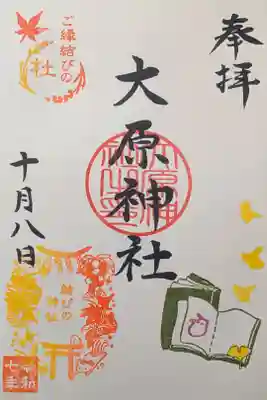 奉拝
ご縁結びの
社
大原神社
十月八日
結びの
神社
令和
七年